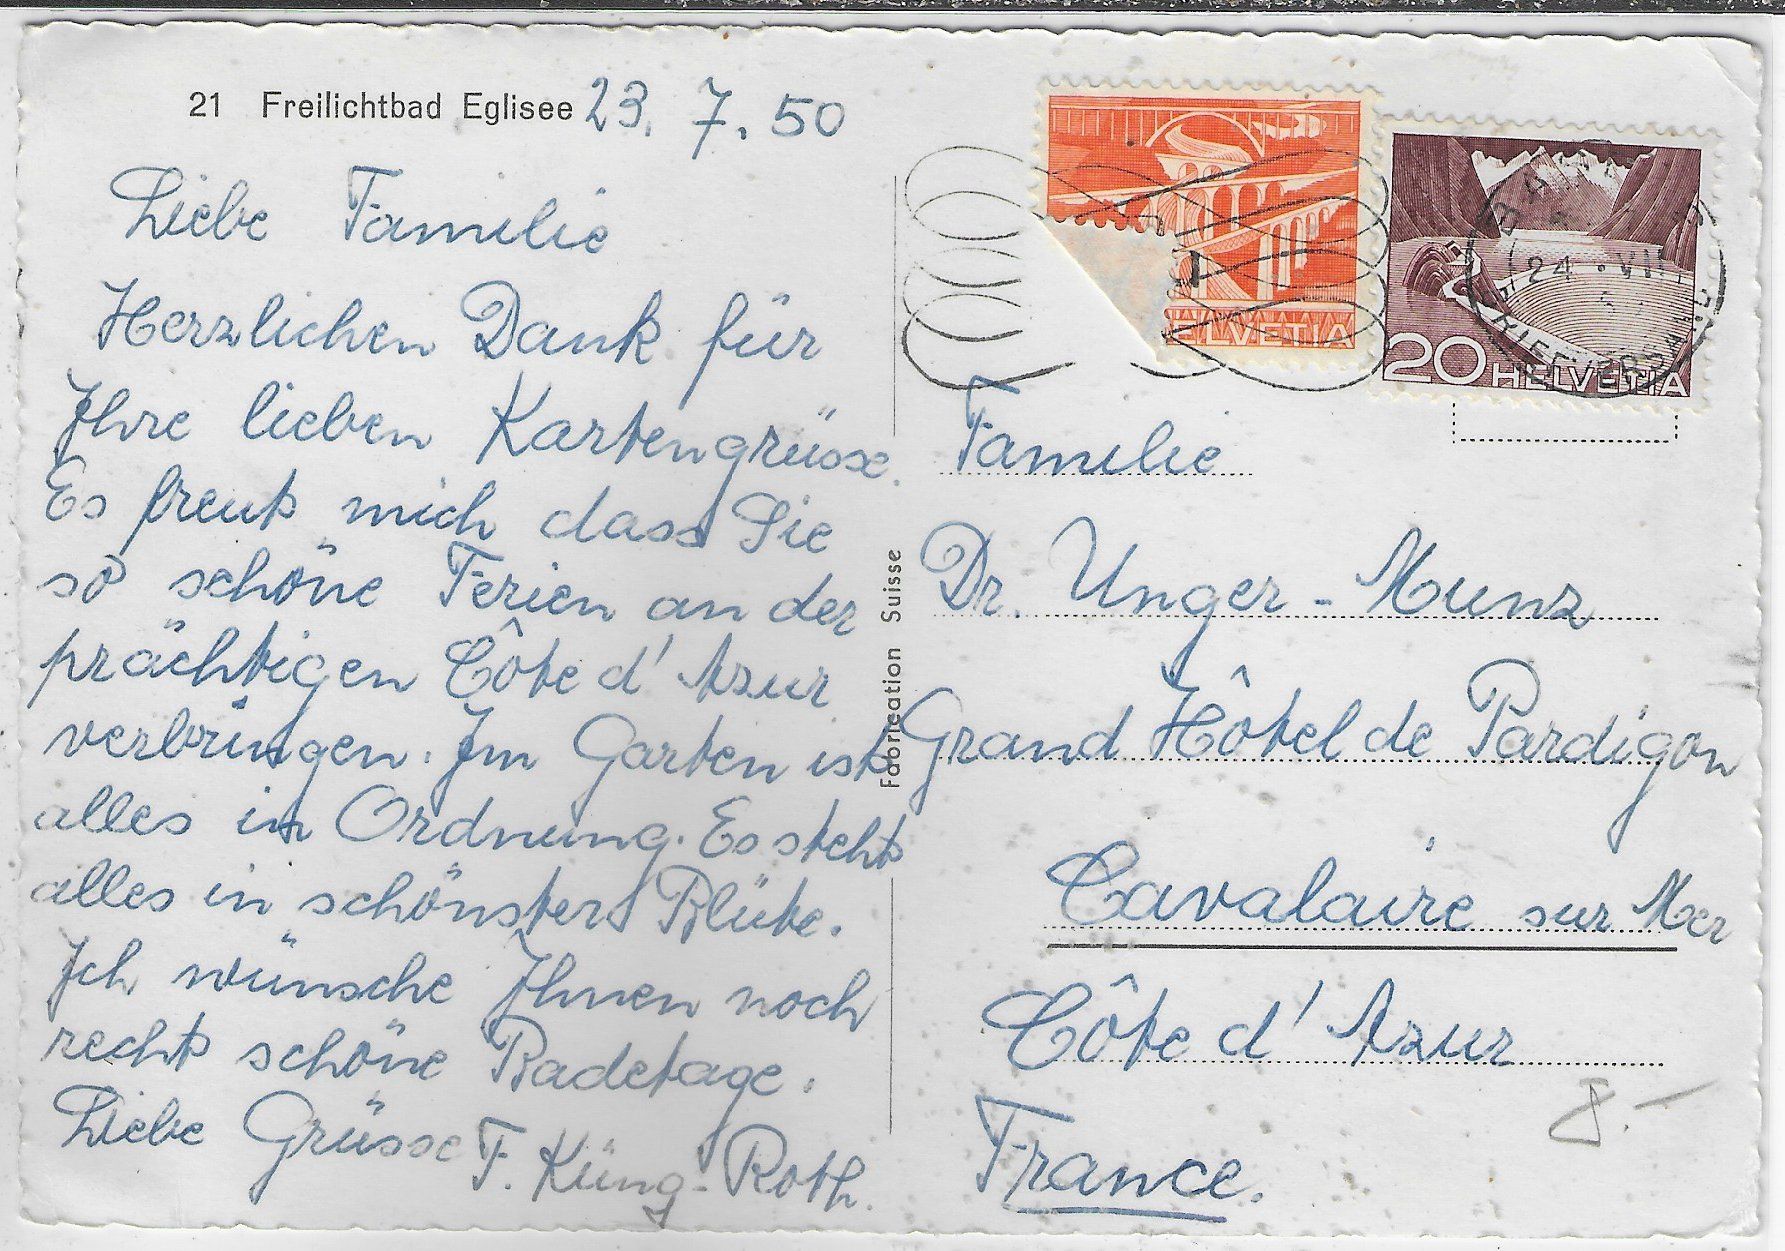 21 Freilichtbad Eglisee 23. 7. 50
Liebe Familie
Herzlichen Dank für
Ihre lieben Kartengrüsse.
Es freut mich dass Sie
so schöne Ferien an der
prächtigen Côte d'Azur
verbringen. Im Garten ist
alles in Ordnung. Es steht
alles in schönster Blüte.
Ich wünsche Ihnen noch
recht schöne Badetage.
Liebe Grüsse F. Küng-Roth.
Fabrication Suisse
HELVETIA
20 HELVETIA
24 · VII
Familie
Dr. Unger-Munz
Grand Hôtel de Pardigon
Cavalaire sur Mer
Côte d'Azur
France.
8.-